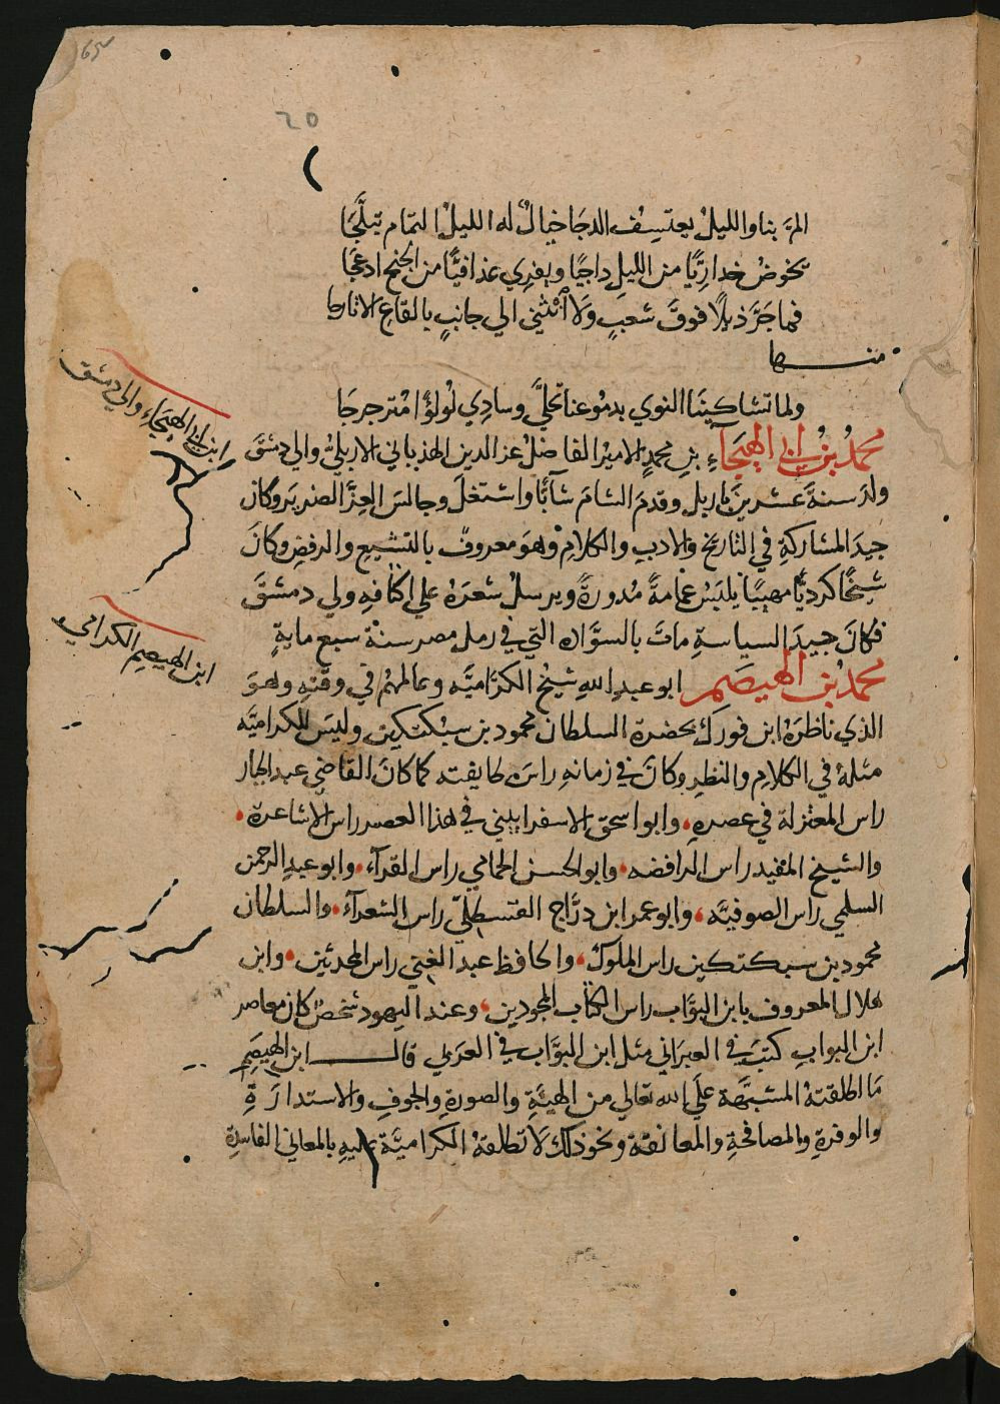 65
20
الم بنا والليل يعتسف الدجا خيال له الليل التمام تبلجا
يخوض خداريًا من الليل داجيًا ويفري غدافيًا من الجنح ادعجا
فما جر ذيلًا فوق شعب ولا انثنى الي جانب بالقاع الا تارجا
منها
ولما تشاكينا النوي بدموعنا تحلي وسادي لولؤًا مترجرجا
محمد بن ابي الهيجاء بن محمد الامير الفاضل عز الدين الهذباني الاربلي والي دمشق
ولد سنة عشرين باربل وقدم الشام شابًا واشتغل وجالس العز الضرير وكان
جيد المشاركة في التاريخ والادب والكلام وهو معروف بالتشيع والرفض وكان
شيخًا كرديًا مهيبًا يلبس عمامةً مدورةً ويرسل شعره علي اكتافه ولي دمشق
فكان جيد السياسة مات بالسواده التي في رمل مصر سنة سبع ماية
محمد بن الهيصم ابو عبد الله شيخ الكراميه وعالمهم في وقته وهو
الذي ناظره ابن فورك بحضرة السلطان محمود بن سبكتكين وليس للكراميه
مثله في الكلام والنظر وكان في زمانه راس طايفته كما كان القاضي عبد الجبار
راس المعتزلة في عصره، وابو اسحق الاسفراييني في هذا العصر راس الاشاعرة،
والشيخ المفيد راس الرافضه، وابو الحسن الحمامي راس القرآء، وابو عبد الرحمن
السلمي راس الصوفيه، وابو عمر ابن دراج القسطلي راس الشعرآء، والسلطان
محمود بن سبكتكين راس الملوك، والحافظ عبد الغني راس المحدثين، وابن
هلال المعروف بابن البواب راس الكتاب المجودين، وعند اليهود شخص كان معاصر
ابن البواب كتب في العبراني مثل ابن البواب في العربي قال ابن الهيصم
ما اطلقته المشبهة على الله تعالي من الهيئة والصورة والجوف والاستدارة
والوفرة والمصافحة والمعانقة ونحو ذلك لا تطلقه الكرامية عليه بالمعاني الفاسدة
ابن ابي الهيجاء والي دمشق
ابن الهيصم الكرامي